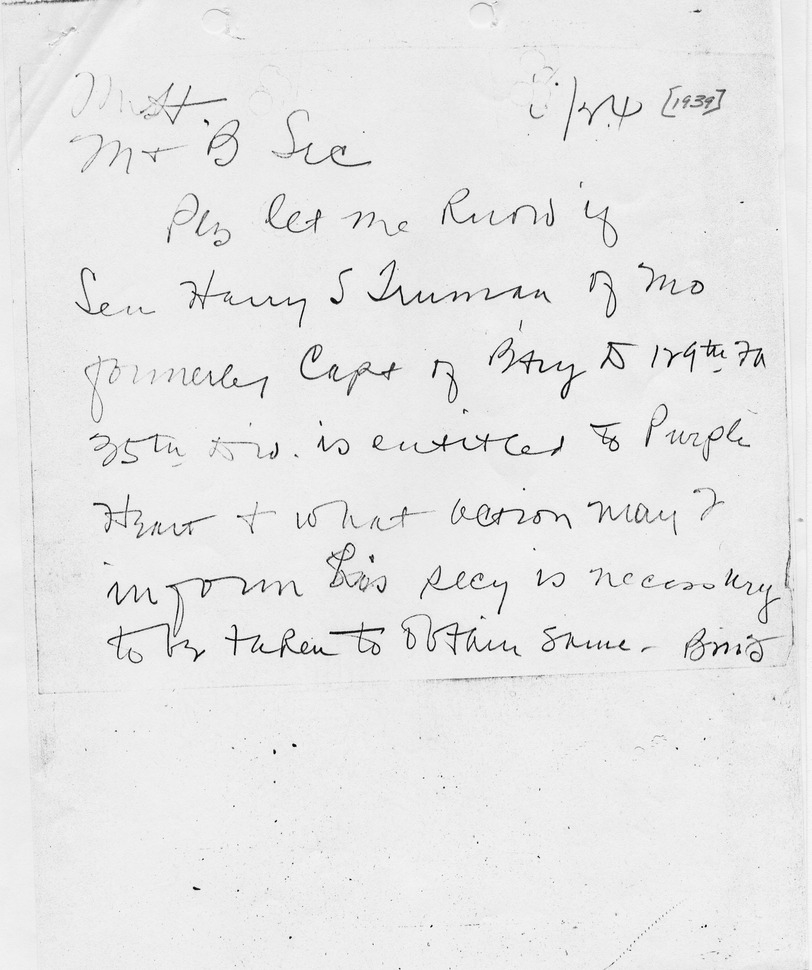 /24 [1939]
M + B Sec
Pls let me know if
Sen Harry S Truman of Mo
formerley Capt of B'try D 129th Fa
35th Div. is entitled to Purple
Heart + what action may I
inform his secy is necessary
to be taken to obtain same -